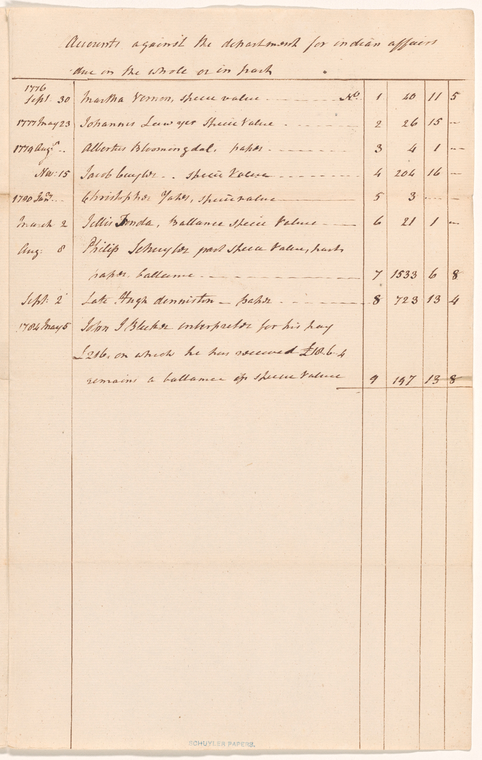 Accounts against the department for indian affairs
due on the whole or in part
1776
Sept. 30 Martha Vernon, specie value No. 1 40 11 5
1777 May 23 Johannes Lawyer specie value 2 26 15 —
1779 Augt. Albertus Bloomingdal, paper 3 4 1 —
Nov. 15 Jacob Cuyler specie value 4 204 16 —
1780 Jany. Christopher Yates, specie value 5 3 — —
March 2 Jellis Fonda, Ballance specie value 6 21 1 —
Aug. 8 Philip Schuyler part specie value, part
paper ballance 7 1533 6 8
Sept. 2 Late Hugh Denniston paper 8 723 13 4
1784 May 5 John J. Bleeker interpretor for his pay
£216, on which he has received £18.6.4
remains a ballance of specie value 9 197 13 8
SCHUYLER PAPERS.